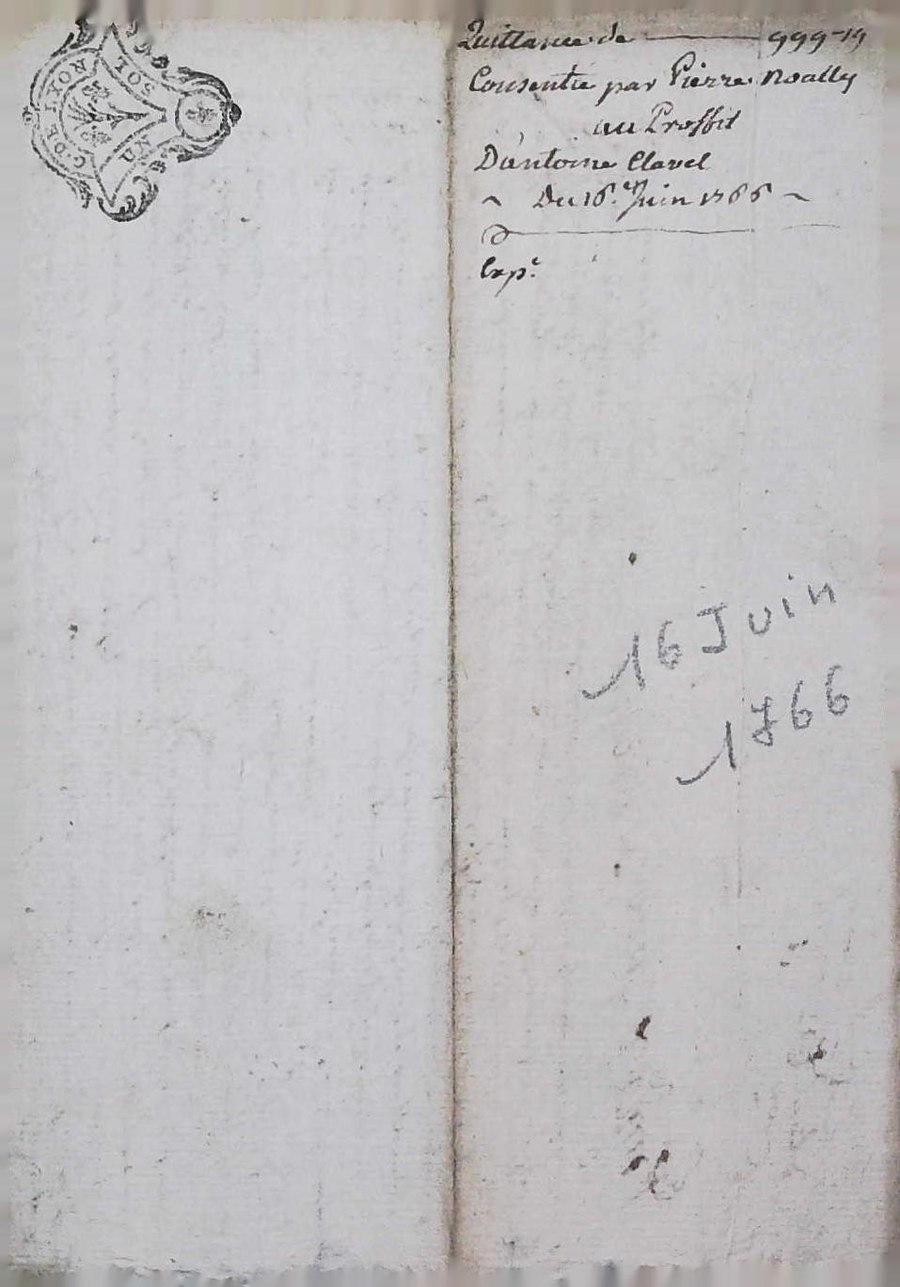 G. DE LYON
UN SOL
Quittance de 999-19
Consentie par Pierre Noally
au Proffit
D'antoine Clavel
~ Du 16.e Juin 1766 ~
Exp.e
16 Juin
1766